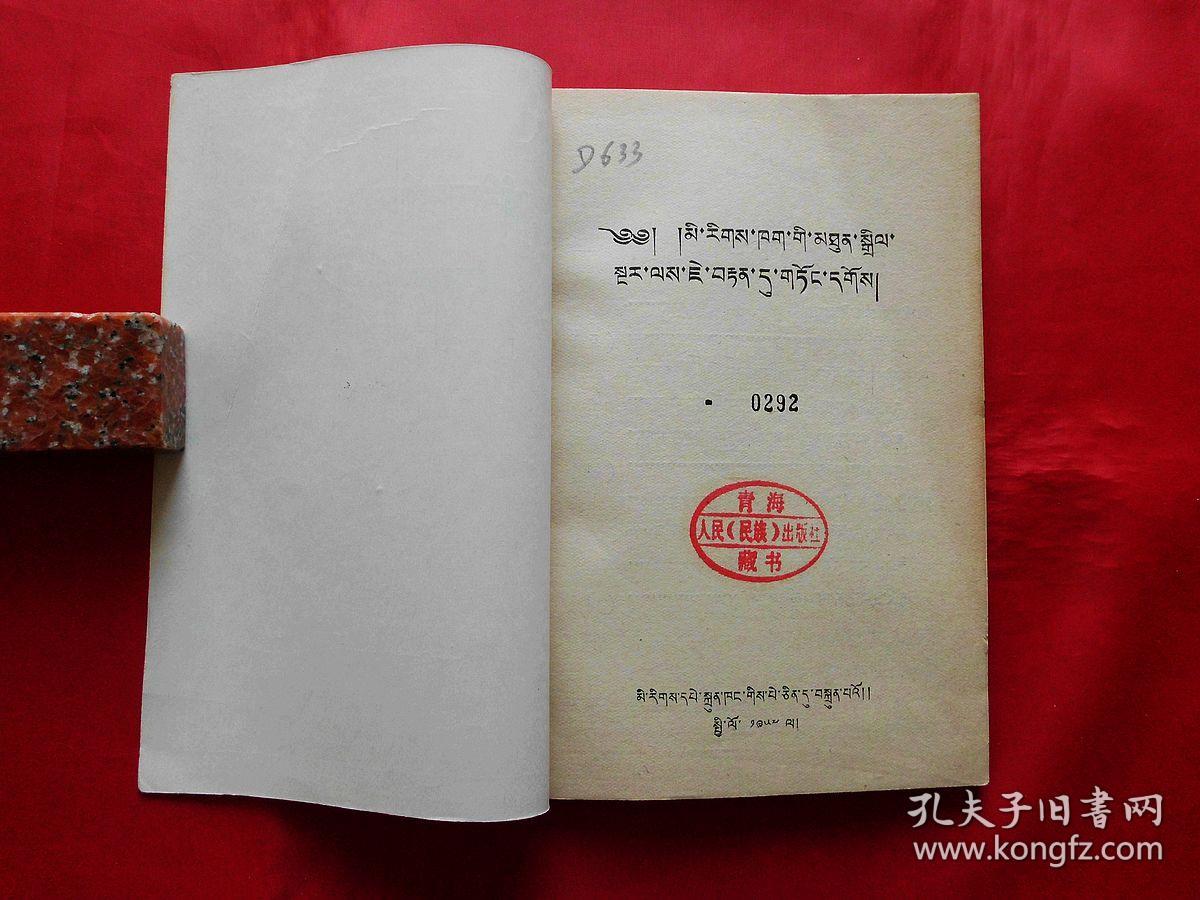 D633
༄༅། །མི་རིགས་ཁག་གི་མཐུན་སྒྲིལ་
སྔར་ལས་ཇེ་བརྟན་དུ་གཏོང་དགོས།
0292
青海
人民(民族)出版社
藏书
མི་རིགས་དཔེ་སྐྲུན་ཁང་གིས་པེ་ཅིན་དུ་བསྐྲུན་པའོ།།
སྤྱི་ལོ་ ལ།
孔夫子旧书网
www.kongfz.com